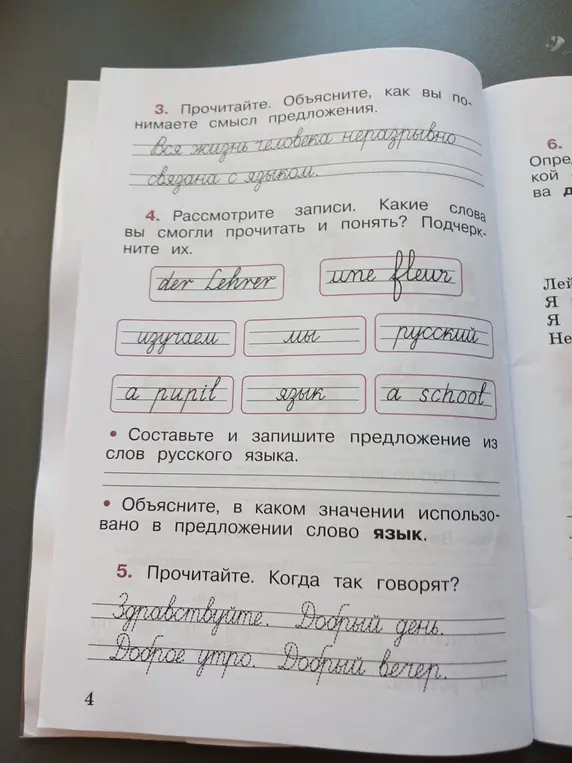 3. Прочитайте. Объясните, как вы по-
нимаете смысл предложения.
Вся жизнь человека неразрывно
связана с языком.
4. Рассмотрите записи. Какие слова
вы смогли прочитать и понять? Подчерк-
ните их.
der Lehrer une fleur
изучаем мы русский
a pupil язык a school
• Составьте и запишите предложение из
слов русского языка.
• Объясните, в каком значении использо-
вано в предложении слово язык.
5. Прочитайте. Когда так говорят?
Здравствуйте. Добрый день.
Доброе утро. Добрый вечер.
4
6.
Опред
кой
ва д
Лей
Я
Я
Не